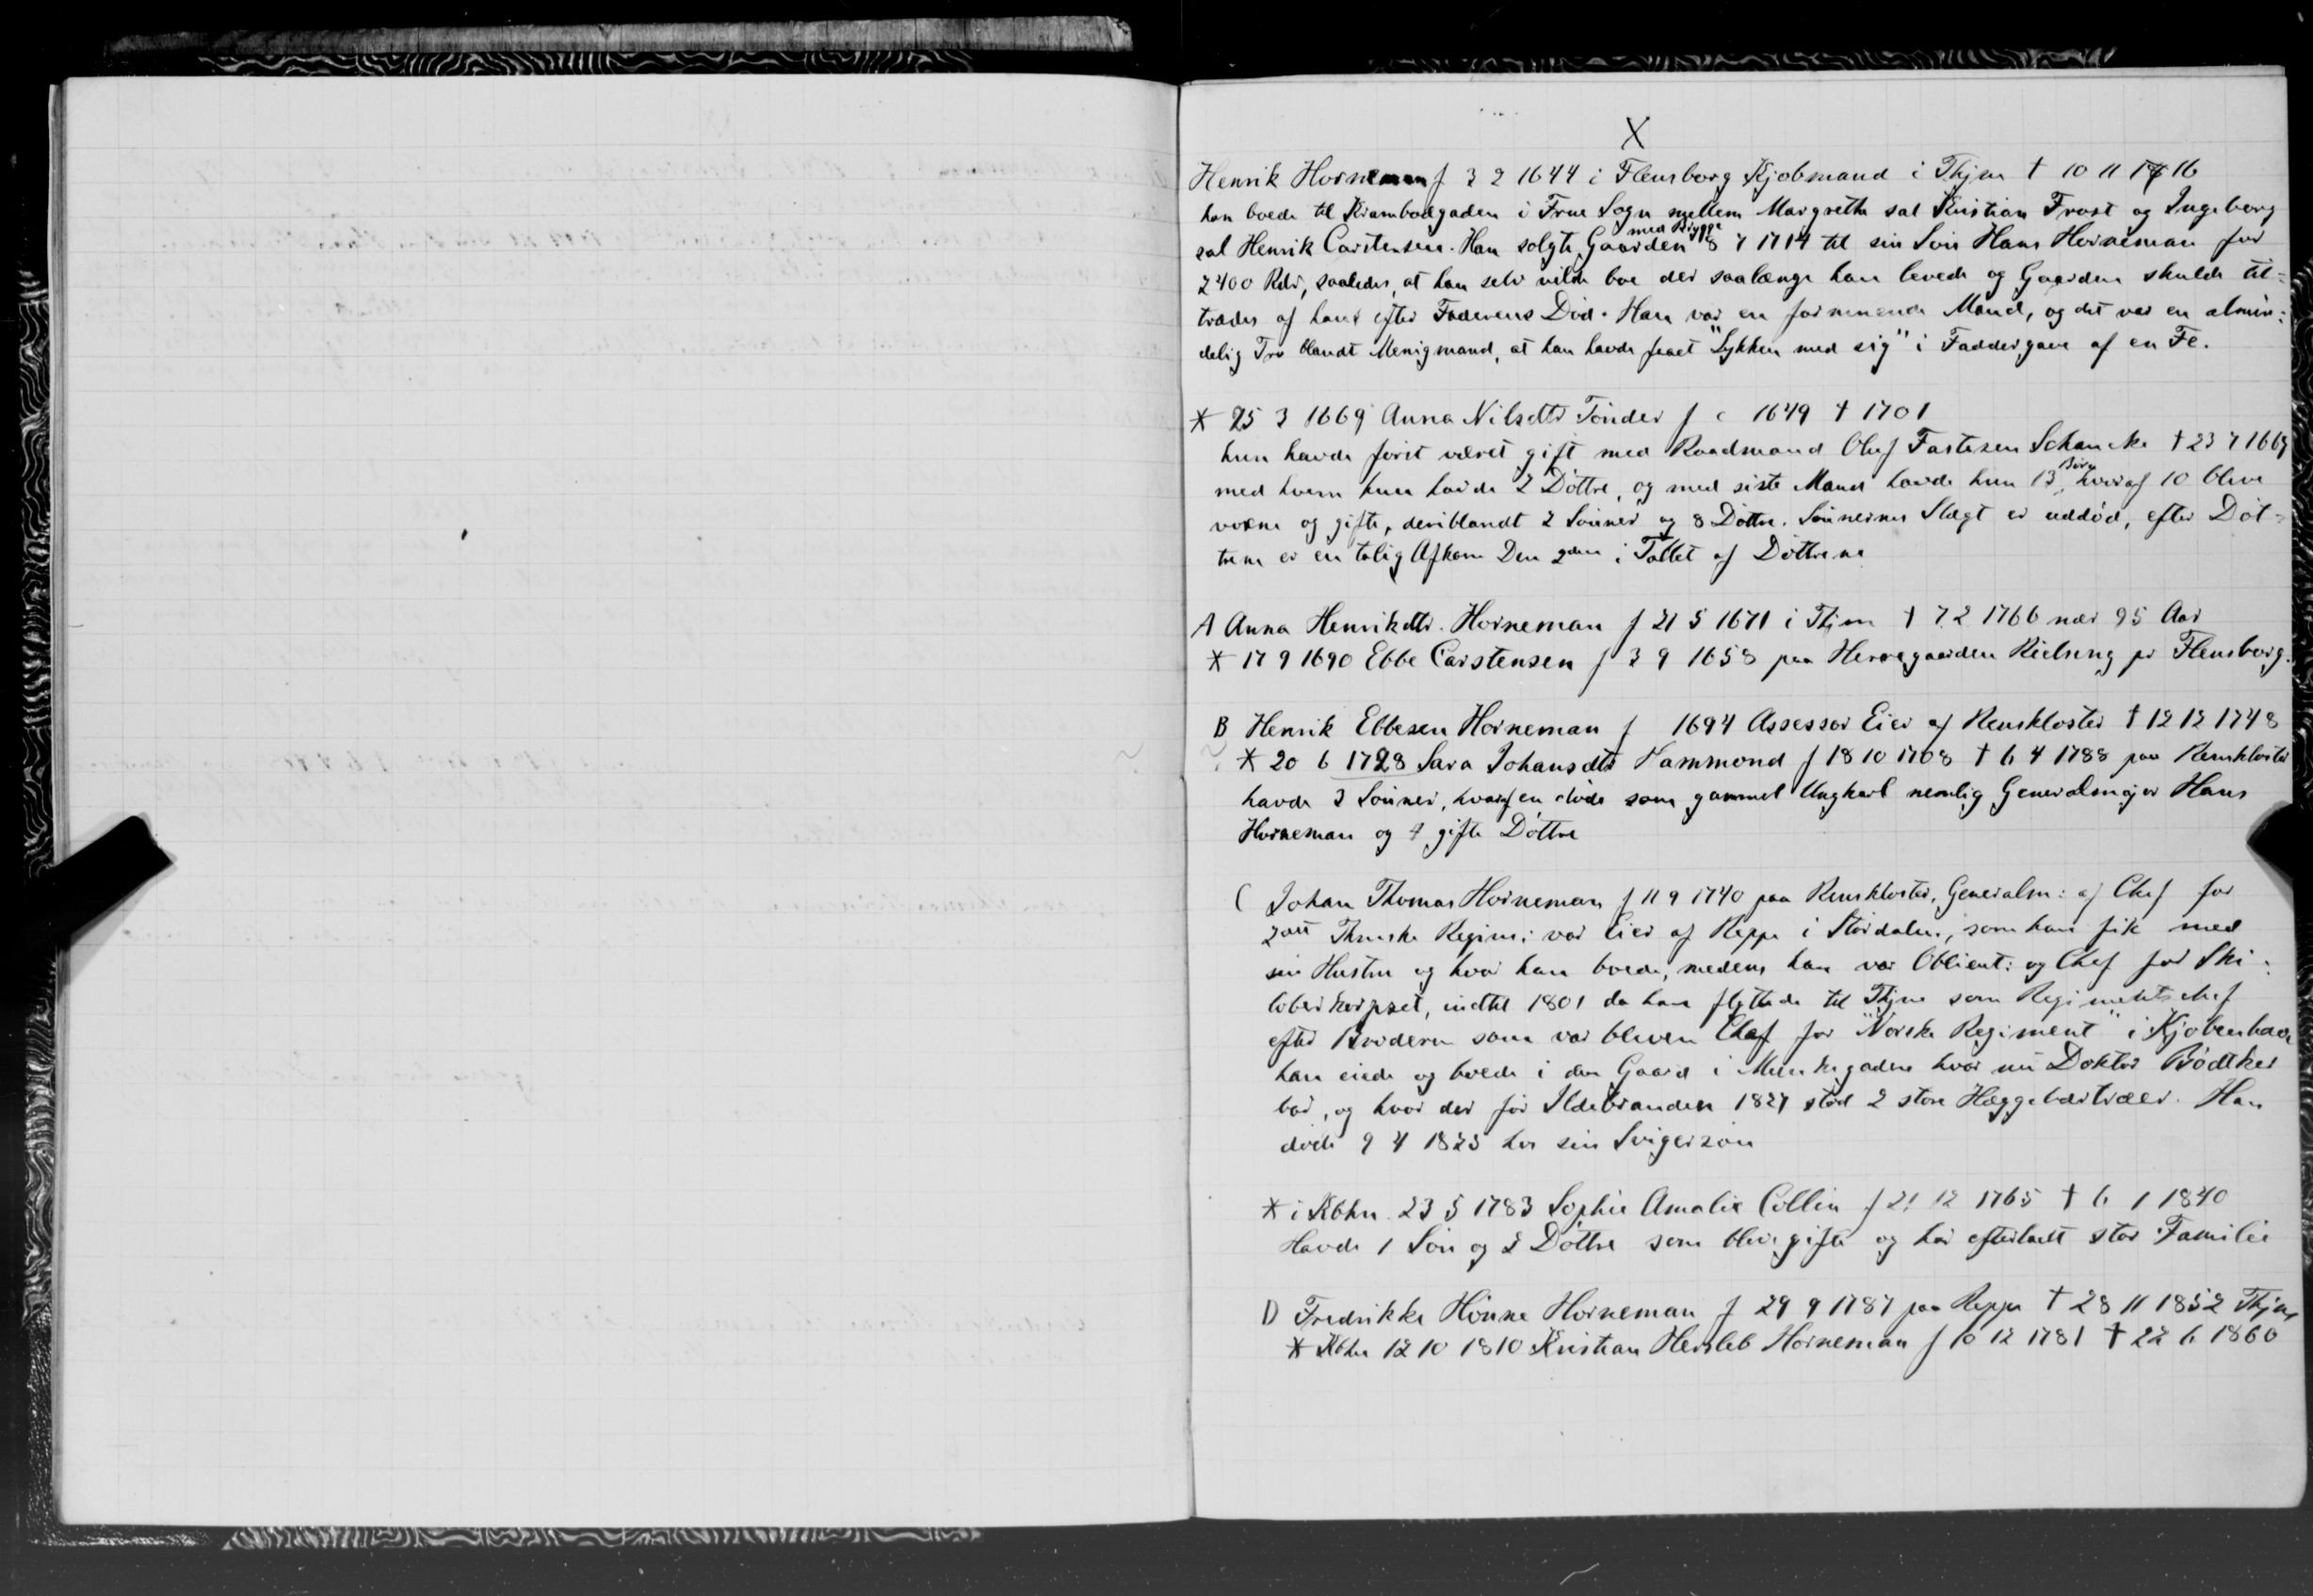 X
Henrik Horneman f 3 2 1644 i Flensborg Kjøbmand i Thjm † 10 11 1716
han boede til Krambodgaden i Frue Sogn mellem Margrethe sal Kristian Frost og Ingeborg
sal Henrik Carstensen. Han solgte Gaarden med Brygge 8 7 1714 til sin Søn Hans Horneman for
2400 Rdlr, saaledes, at han selv vilde boe der saalænge han levede og Gaarden skulde til=
trædes af hans efter Faderens Død. Han var en formuende Mand, og det var en almin=
delig Tro blandt Menigmand, at han havde faaet "Lykken med sig" i Faddergave af en Fe.
* 25 3 1669 Anna Nilsdtr Tønder f c 1649 † 1701
hun havde først været gift med Raadmand Oluf Fastesen Schancke † 23 7 1669
med hvem hun havde 2 Døttre, og med siste Mand havde hun 13 Børn, hvoraf 10 bleve
voxne og gifte, deriblandt 2 Sønner og 8 Døttre. Sønnernes Slægt er uddød, efter Døt=
trene er en talrig Afkom Den 2den i Tallet af Døttrene
A Anna Henrikdtr. Horneman f 21 5 1671 i Thjm † 7 2 1766 nær 95 Aar
* 17 9 1690 Ebbe Carstensen f 3 9 1658 paa Herregaarden Rielseng pr Flensborg.
B Henrik Ebbesen Horneman f 1694 Assessor Eier af Reinskloster † 12 12 1748
* 20 6 1728 Sara Johansdtr Hammond f 18 10 1708 † 6 4 1788 paa Reinskloster
havde 3 Sønner, hvoraf en døde som gammel Ungkarl nemlig Generalmajor Hans
Horneman og 4 gifte Døttre
C Johan Thomas Horneman f 11 9 1740 paa Reinskloster, Generalm: og Chef for
2det Thmske Regim: var Eier af Reppe i Stördalen, som han fik med
sin Hustru og hvor han boede, medens han var Oblieut: og Chef for Ski=
løberkorpset, indtil 1801 da han flyttede til Thjm som Regimentschef
efter Broderen som var bleven Chef for "Norske Regiment" i Kjøbenhavn
han eiede og boede i den Gaard i Munkegaden hvor nu Doktor Bödtker
bor, og hvor der før Ildebranden 1827 stod 2 store Hæggebærtræer. Han
døde 9 4 1825 hos sin Svigersøn
* i Kbhn. 23 5 1783 Sophie Amalie Collin f 21 12 1765 † 6 1 1840
Havde 1 Søn og 2 Døttre som blev gifte og har efterladt stor Familie
D Fredrikke Hönne Horneman f 29 9 1787 paa Reppe † 28 11 1852 Thjm
* Kbhn 12 10 1810 Kristian Hersleb Horneman f 10 12 1781 † 22 6 1860